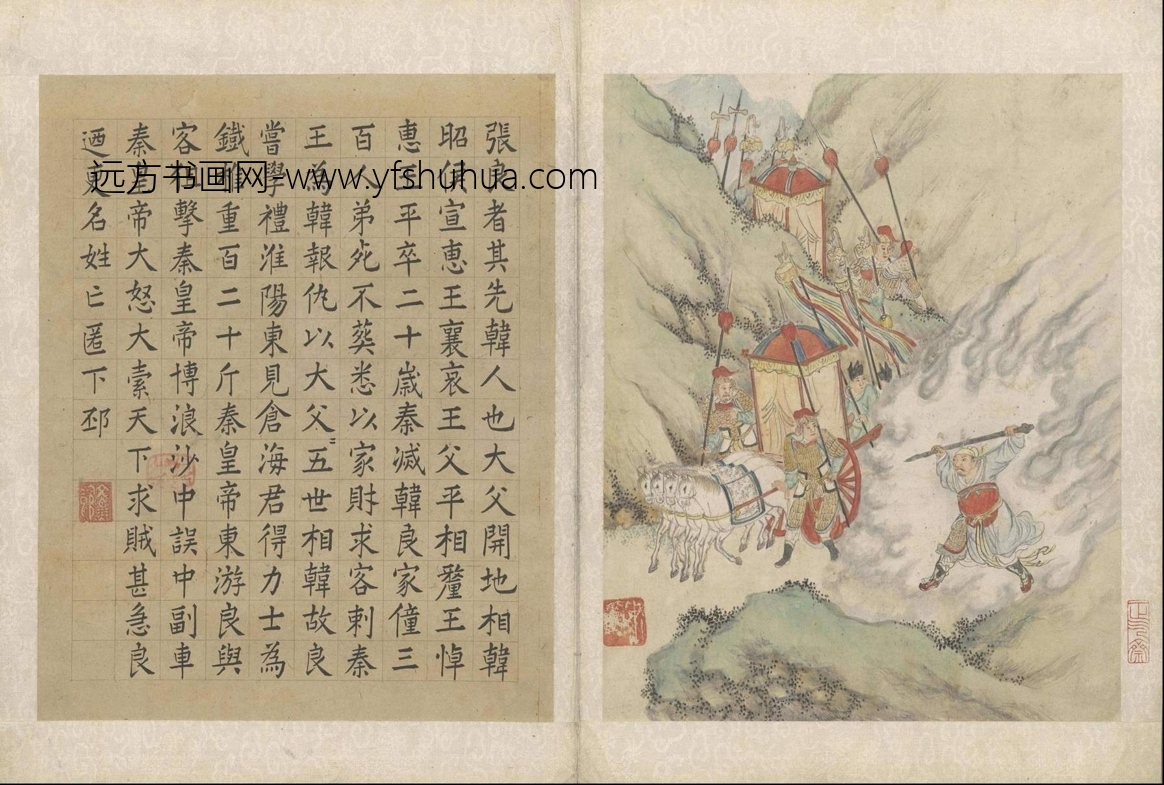 張良者其先韓人也大父開地相韓
昭侯宣惠王襄哀王父平相釐王悼
惠王平卒二十歲秦滅韓良家僮三
百人弟死不葬悉以家財求客刺秦
王為韓報仇以大父〻五世相韓故良
嘗學禮淮陽東見倉海君得力士為
鐵椎重百二十斤秦皇帝東游良與
客狙擊秦皇帝博浪沙中誤中副車
秦皇帝大怒大索天下求賊甚急良
迺更名姓亡匿下邳
远方书画网-www.yfshuhua.com